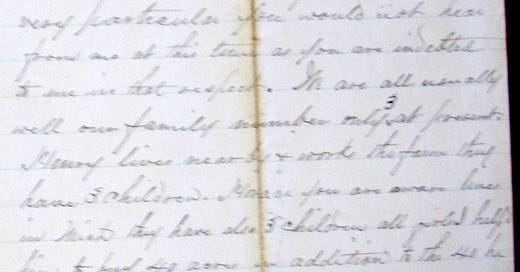 very particular you would not hear
from me at this time as you are indetted
to me in that respect. We are all usually
well our family number only 3 at present.
Henry lives near us & works the farm they
have 3 children. you are aware lives
in they have also 3 children all girls I
him to buy 40 acres in addition to the 40 he